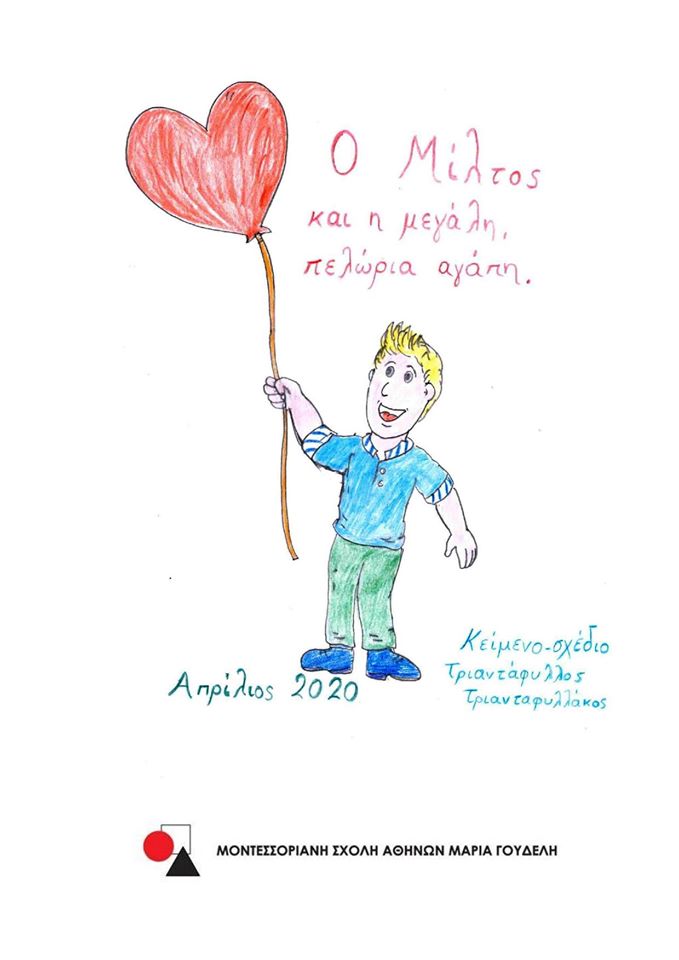 Ο Μίλτος
και η μεγάλη,
πελώρια αγάπη.
Κείμενο-σχέδιο
Τριαντάφυλλος
Τριανταφυλλάκος
Απρίλιος 2020
ΜΟΝΤΕΣΣΟΡΙΑΝΗ ΣΧΟΛΗ ΑΘΗΝΩΝ ΜΑΡΙΑ ΓΟΥΔΕΛΗ